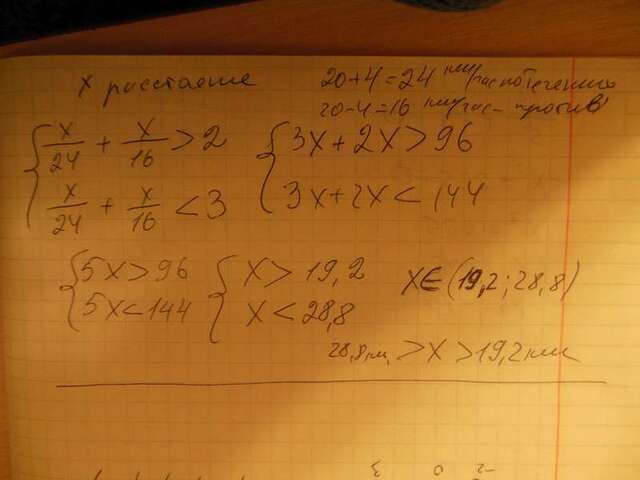 x расстояние 20+4=24 км/час по течению
20-4=16 км/час - против
{ x/24 + x/16 > 2 { 3x+2x>96
x/24 + x/16 < 3 3x+2x<144
{ 5x>96 { x>19,2 x∈(19,2;28,8)
5x<144 x<28,8
28,8км > x > 19,2км
3 0 -2